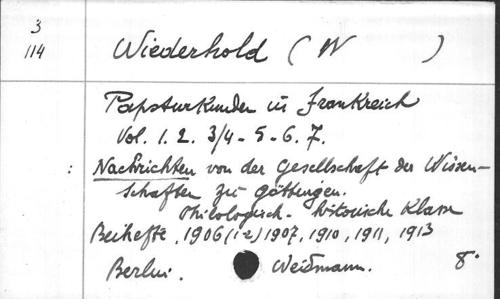 3
114
Wiederhold ( W )
Papsturkunden in Frankreich
Vol. 1. 2. 3/4 - 5 - 6. 7.
: Nachrichten von der Gesellschaft der Wissen-
schaften zu Göttingen.
Philologisch - historische Klasse
Beihefte, 1906 (1-2) 1907, 1910, 1911, 1913
Berlin. Weidmann. 8°